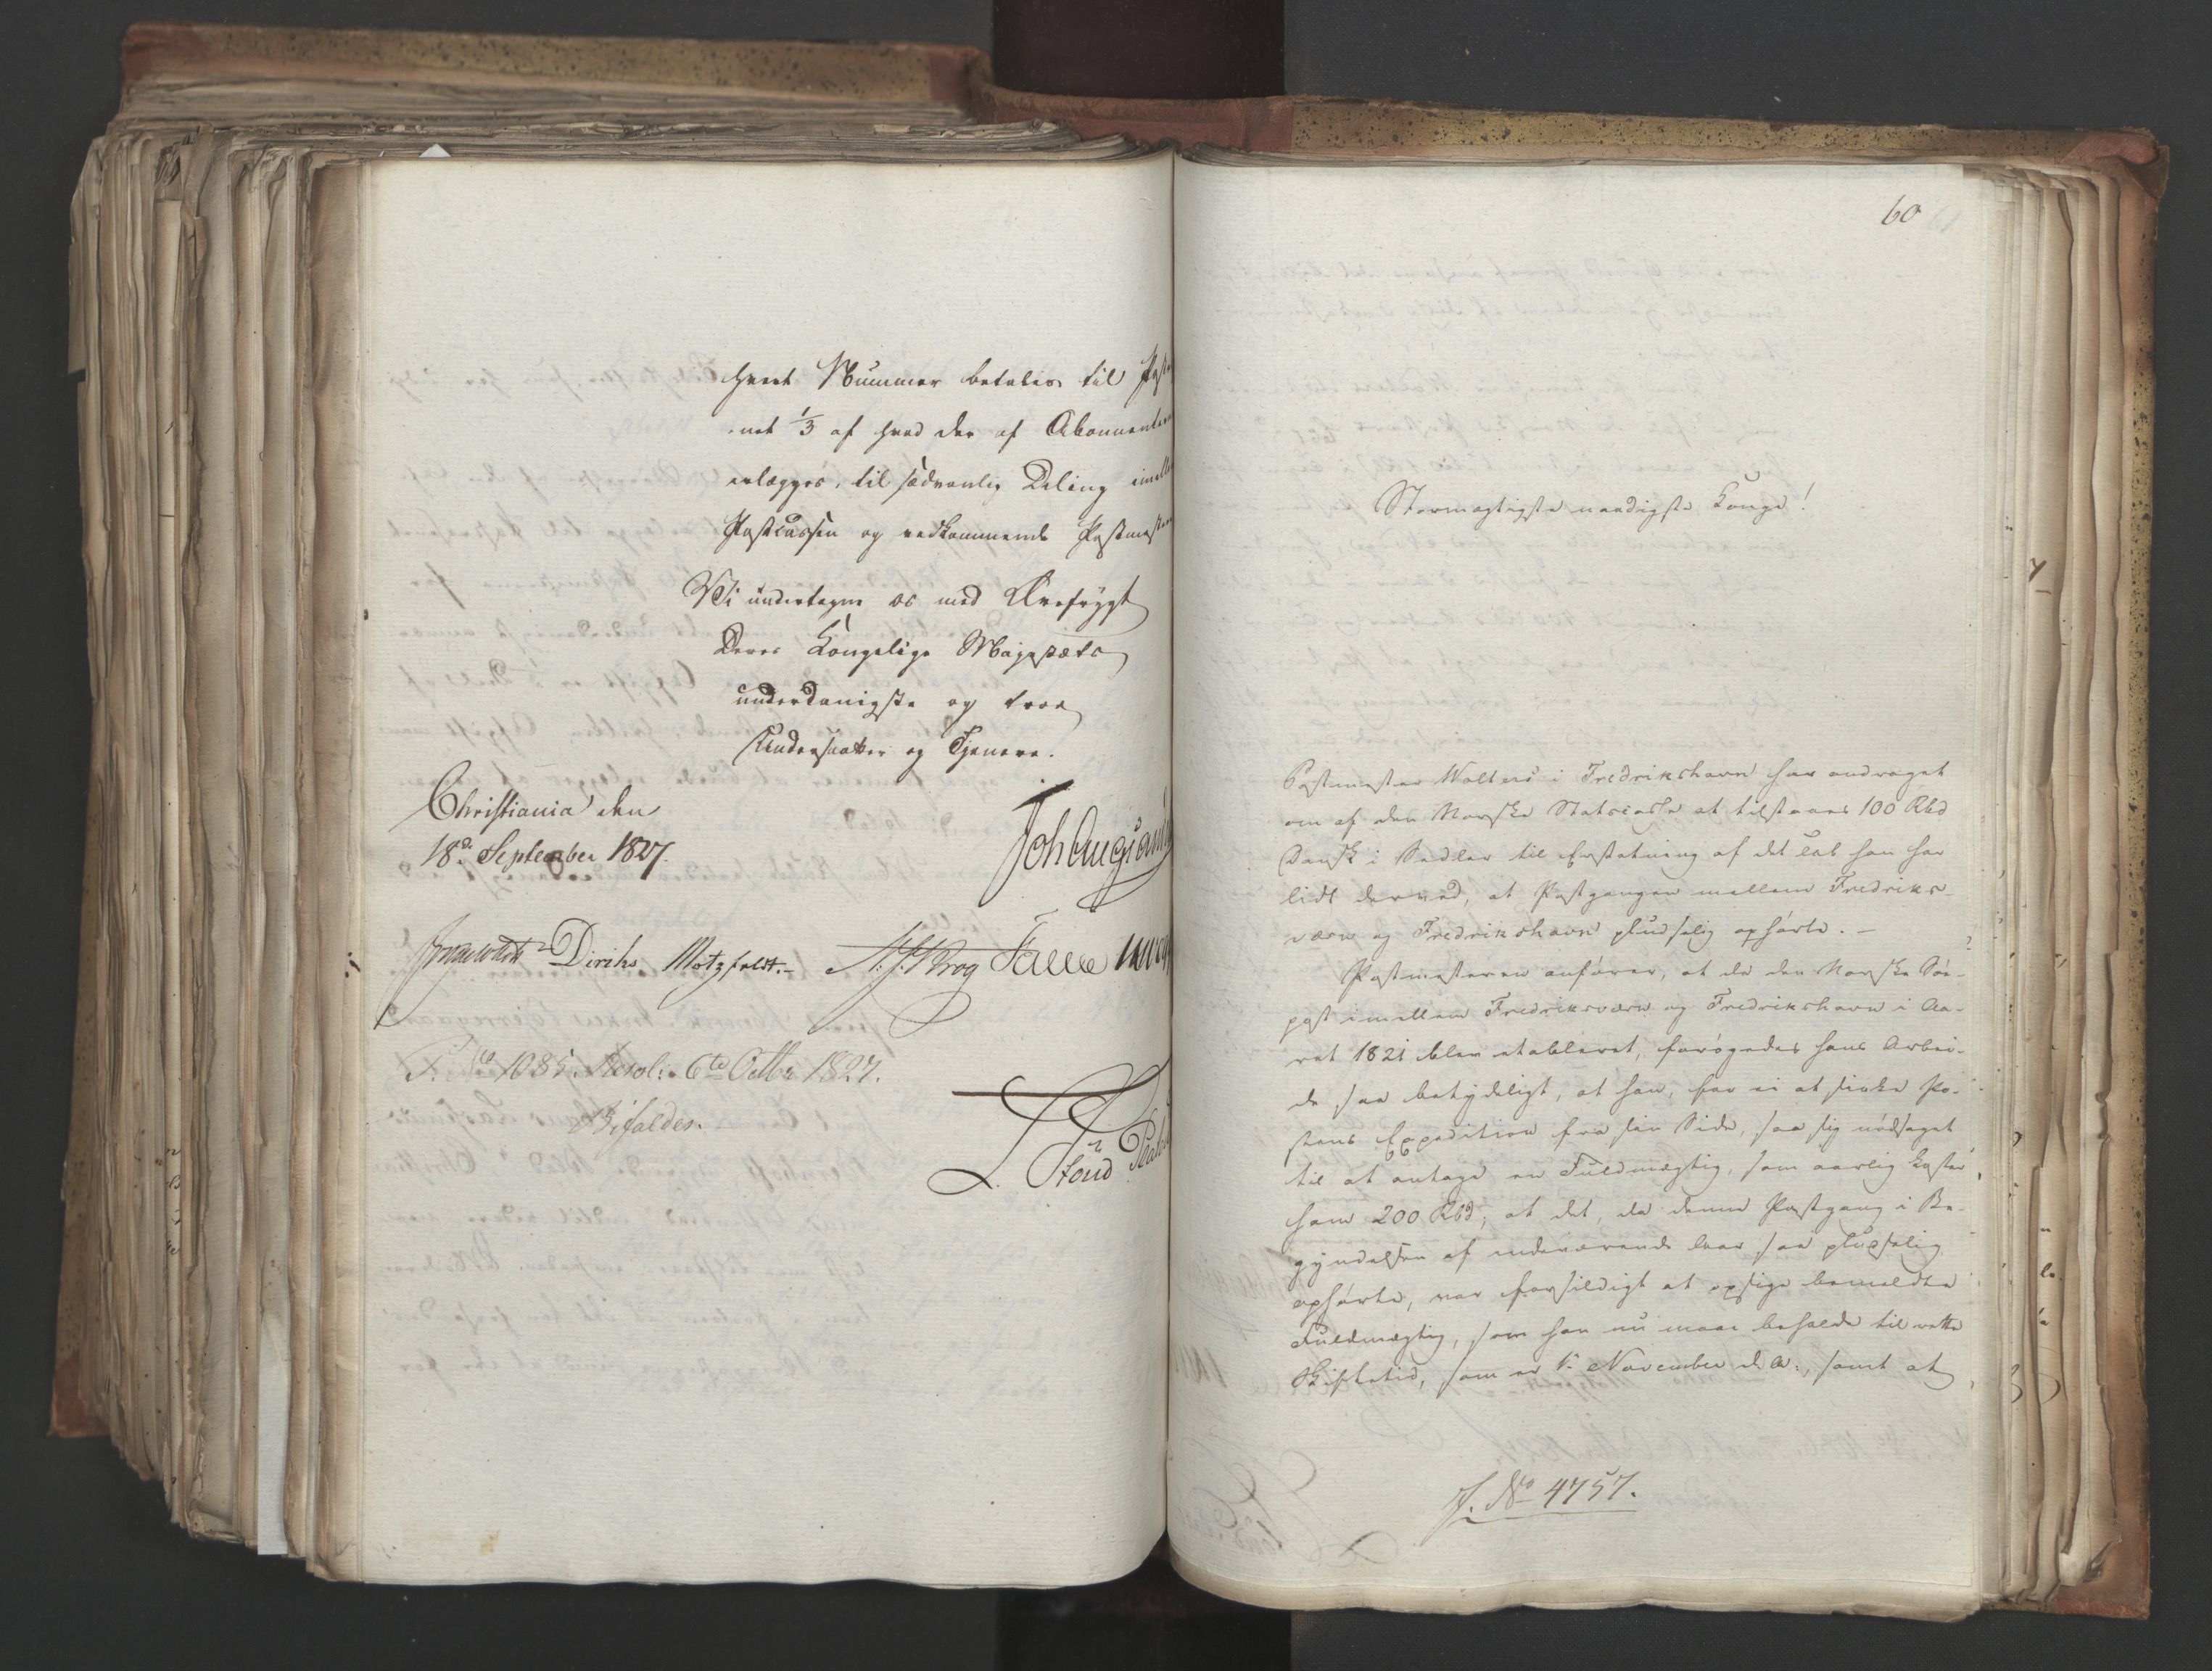 hvert Nummer betales til Postvæs-
net 1/3 af hvad der af Abonnenterne
erlægges, til sædvanlig Deling imellem
Postcassen og vedkommende Postmester
Vi undertegne os med Ærefrygt
Deres Kongelige Majestæts
underdanigste og troe
Undersaatter og Tjenere.
Christiania den
18de September 1827.
Joh Aug Sandels
Diriks Motzfeldt.- N. J. Krog
No 1085. Resol: 6te Octbr 1827.
Bifaldes.
60
Stormægtigste naadigste Konge!
Postmester Wolters i Fredrikshavn har andraget
om af den Norske Statscasse at tilstaaes 100 Rbd
Dansk i Sedler til Erstatning af det Tab han har
lidt derved, at Postgangen mellem Fredriks-
værn og Fredrikshavn pludselig ophørte. -
Postmesteren anfører, at da den Norske Søe-
post imellem Fredriksværn og Fredrikshavn i Aa-
ret 1821 blev etableret, forøgedes hans Arbei-
de saa betydeligt, at han, for ei at sinke Po-
stens Expedition fra sin Side, saa sig nødsaget
til at antage en Fuldmægtig, som aarlig koster
ham 200 Rbd, at det, da denne Postgang i Be-
gyndelsen af indeværende Aar saa pludselig
ophørte, var forsildigt at opsige bemeldte
Fuldmægtig, som han nu maae beholde til rette
Skiftetid, som er 1. November d. A., samt at
J. No 4757.